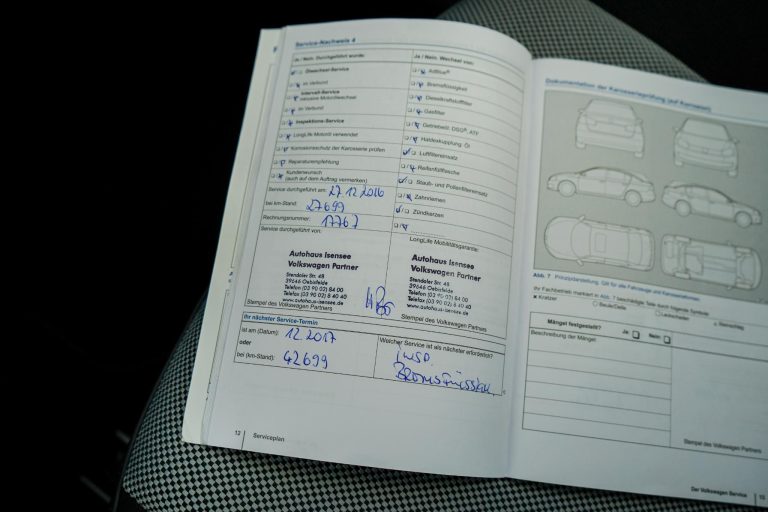 Service-Nachweis 4
Ja / Nein: Durchgeführt wurde:
Ölwechsel-Service
im Verbund
Intervall-Service
inklusive Motorölwechsel
im Verbund
Inspektions-Service
LongLife Motoröl verwendet
Korrosionsschutz der Karosserie prüfen
Reparaturempfehlung
Kundenwunsch
(auch auf dem Auftrag vermerken)
Service durchgeführt am: 27.12.2016
bei km-Stand: 27699
Rechnungsnummer: 17767
Service durchgeführt von:
Autohaus Isensee
Volkswagen Partner
Stendaler Str. 48
39646 Oebisfelde
Telefon (03 90 02) 84 00
Telefax (03 90 02) 8 40 40
www.autohaus-isensee.de
Stempel des Volkswagen Partners
Ja / Nein: Wechsel von:
AdBlue®
Bremsflüssigkeit
Dieselkraftstofffilter
Gasfilter
Getriebeöl: DSG®, ATF
Haldexkupplung: Öl
Luftfiltereinsatz
Reifenfüllflasche
Staub- und Pollenfiltereinsatz
Zahnriemen
Zündkerzen
LongLife Mobilitätsgarantie:
Autohaus Isensee
Volkswagen Partner
Stendaler Str. 48
39646 Oebisfelde
Telefon (03 90 02) 84 00
Telefax (03 90 02) 8 40 40
www.autohaus-isensee.de
Stempel des Volkswagen Partners
Ihr nächster Service-Termin
ist am (Datum): 12.2017
oder
bei (km-Stand): 42699
Welcher Service ist als nächster erforderlich?
Insp.
12 Serviceplan
Dokumentation der Karosserieprüfung (auf Korrosion)
Abb. 7 Prinzipdarstellung: Gilt für alle Fahrzeuge und Karosserieformen
Ihr Fachbetrieb markiert in Abb. 7 beschädigte Teile durch folgende Symbole:
x Kratzer
Beule/Delle
Lackschaden
Steinschlag
Mängel festgestellt? Ja: Nein:
Beschreibung der Mängel:
Stempel des Volkswagen Partners
Der Volkswagen Service 13